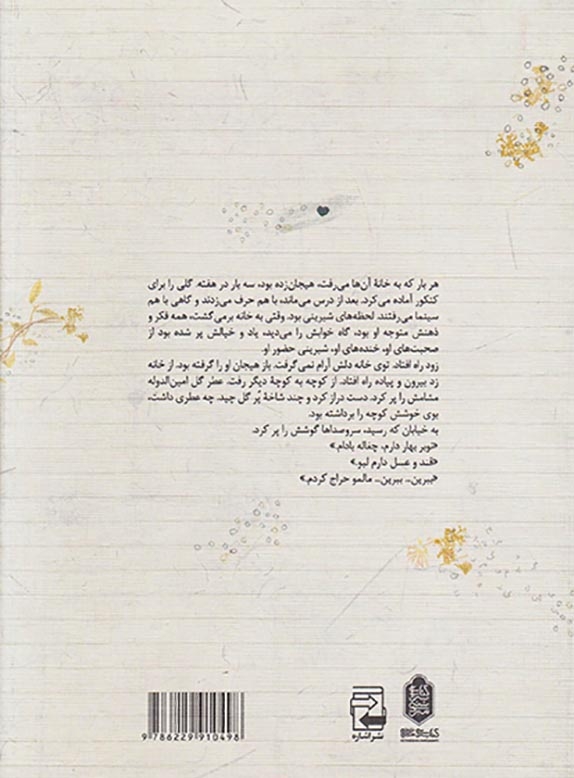 هر بار که به خانهٔ آن‌ها می‌رفت، هیجان‌زده بود، سه بار در هفته. گلی را برای
کنکور آماده می‌کرد. بعد از درس می‌ماند، با هم حرف می‌زدند و گاهی با هم
سینما می‌رفتند. لحظه‌های شیرینی بود. وقتی به خانه برمی‌گشت، همه فکر و
ذهنش متوجه او بود، گاه خوابش را می‌دید، یاد و خیالش پر شده بود از
صحبت‌های او، خنده‌های او، شیرینی حضور او.
زود راه افتاد. توی خانه دلش آرام نمی‌گرفت. باز هیجان او را گرفته بود. از خانه
زد بیرون و پیاده راه افتاد. از کوچه به کوچهٔ دیگر رفت. عطر گل امین‌الدوله
مشامش را پر کرد. دست دراز کرد و چند شاخهٔ پُر گل چید. چه عطری داشت،
بوی خوشش کوچه را برداشته بود.
به خیابان که رسید، سروصداها گوشش را پر کرد.
«نوبر بهار دارم، چغاله بادام.»
«قند و عسل دارم لبو.»
«ببرین.. ببرین.. مالمو حراج کردم.»
نشر اشاره
9 786229 910498